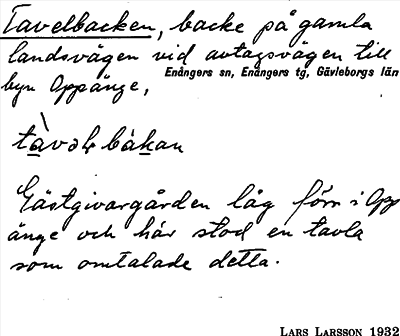 Tavelbacken, backe på gamla
landsvägen vid avtagsvägen till
Enångers sn, Enångers tg, Gävleborgs län
byn Oppänge,
Gästgivargården låg förr i Opp
änge och här stod en tavla
som omtalade detta.
LARS LARSSON 1932